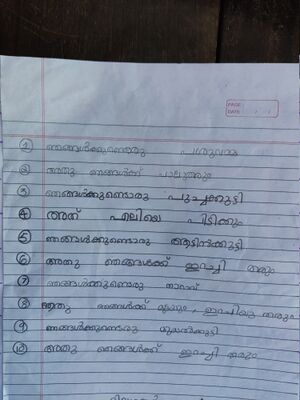 PAGE:
DATE: / /
① ഞങ്ങൾക്കുണ്ടൊരു പശുവമ്മ
② അതു ഞങ്ങൾക്ക് പാലുതരും
③ ഞങ്ങൾക്കുണ്ടൊരു പൂച്ചക്കുട്ടി
④ അത് എലിയെ പിടിക്കും
⑤ ഞങ്ങൾക്കുണ്ടൊരു ആട്ടിൻകുട്ടി
⑥ അതു ഞങ്ങൾക്ക് ഇറച്ചി തരും
⑦ ഞങ്ങൾക്കുണ്ടൊരു താറാവ്
⑧ അതു ഞങ്ങൾക്ക് മുട്ടയും , ഇറച്ചിയു തരും
⑨ ഞങ്ങൾക്കുണ്ടൊരു മുയൽക്കുട്ടി
⑩ അതു ഞങ്ങൾക്ക് ഇറച്ചി തരും